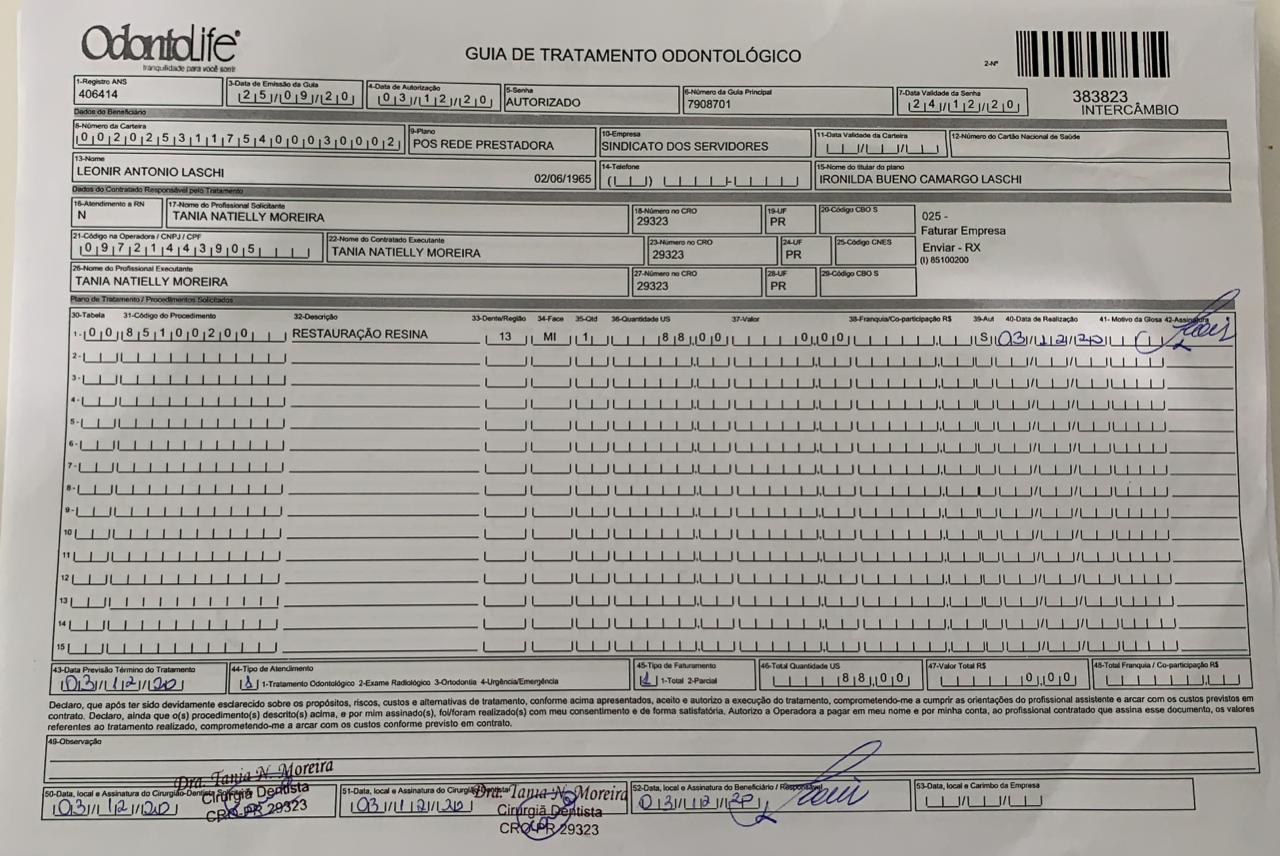 OdontoLife
tranquilidade para você sorrir
GUIA DE TRATAMENTO ODONTOLÓGICO
2-Nº
383823
INTERCÂMBIO
1-Registro ANS
406414
3-Data de Emissão da Guia
25/09/20
4-Data de Autorização
03/12/20
5-Senha
AUTORIZADO
6-Número da Guia Principal
7908701
7-Data Validade da Senha
24/12/20
Dados do Beneficiário
8-Número da Carteira
00202531175400030002
9-Plano
POS REDE PRESTADORA
10-Empresa
SINDICATO DOS SERVIDORES
11-Data Validade da Carteira
12-Número do Cartão Nacional de Saúde
13-Nome
LEONIR ANTONIO LASCHI 02/06/1965
14-Telefone
15-Nome do titular do plano
IRONILDA BUENO CAMARGO LASCHI
Dados do Contratado Responsável pelo Tratamento
16-Atendimento a RN
N
17-Nome do Profissional Solicitante
TANIA NATIELLY MOREIRA
18-Número no CRO
29323
19-UF
PR
20-Código CBO S
025 -
Faturar Empresa
Enviar - RX
(I) 85100200
21-Código na Operadora / CNPJ / CPF
09721443905
22-Nome do Contratado Executante
TANIA NATIELLY MOREIRA
23-Número no CRO
29323
24-UF
PR
25-Código CNES
26-Nome do Profissional Executante
TANIA NATIELLY MOREIRA
27-Número no CRO
29323
28-UF
PR
29-Código CBO S
Plano de Tratamento / Procedimentos Solicitados
30-Tabela 31-Código do Procedimento 32-Descrição 33-Dente/Região 34-Face 35-Qtd 36-Quantidade US 37-Valor 38-Franquia/Co-participação R$ 39-Aut 40-Data de Realização 41- Motivo da Glosa 42-Assinatura
1- 00 85100200 RESTAURAÇÃO RESINA 13 MI 1 88,00 0,00 S 03/12/20
2-
3-
4-
5-
6-
7-
8-
9-
10
11
12
13
14
15
43-Data Previsão Término do Tratamento
03/12/20
44-Tipo de Atendimento
1 1-Tratamento Odontológico 2-Exame Radiológico 3-Ortodontia 4-Urgência/Emergência
45-Tipo de Faturamento
1 1-Total 2-Parcial
46-Total Quantidade US
88,00
47-Valor Total R$
0,00
48-Total Franquia / Co-participação R$
Declaro, que após ter sido devidamente esclarecido sobre os propósitos, riscos, custos e alternativas de tratamento, conforme acima apresentados, aceito e autorizo a execução do tratamento, comprometendo-me a cumprir as orientações do profissional assistente e arcar com os custos previstos em
contrato. Declaro, ainda que o(s) procedimento(s) descrito(s) acima, e por mim assinado(s), foi/foram realizado(s) com meu consentimento e de forma satisfatória. Autorizo a Operadora a pagar em meu nome e por minha conta, ao profissional contratado que assina esse documento, os valores
referentes ao tratamento realizado, comprometendo-me a arcar com os custos conforme previsto em contrato.
49-Observação
50-Data, local e Assinatura do Cirurgião-Dentista
03/12/20
Dra. Tania N. Moreira
Cirurgiã Dentista
CRO-PR 29323
51-Data, local e Assinatura do Cirurgião-Dentista
03/12/20
Dra. Tania N. Moreira
Cirurgiã Dentista
CRO-PR 29323
52-Data, local e Assinatura do Beneficiário / Responsável
03/12/20
53-Data, local e Carimbo da Empresa